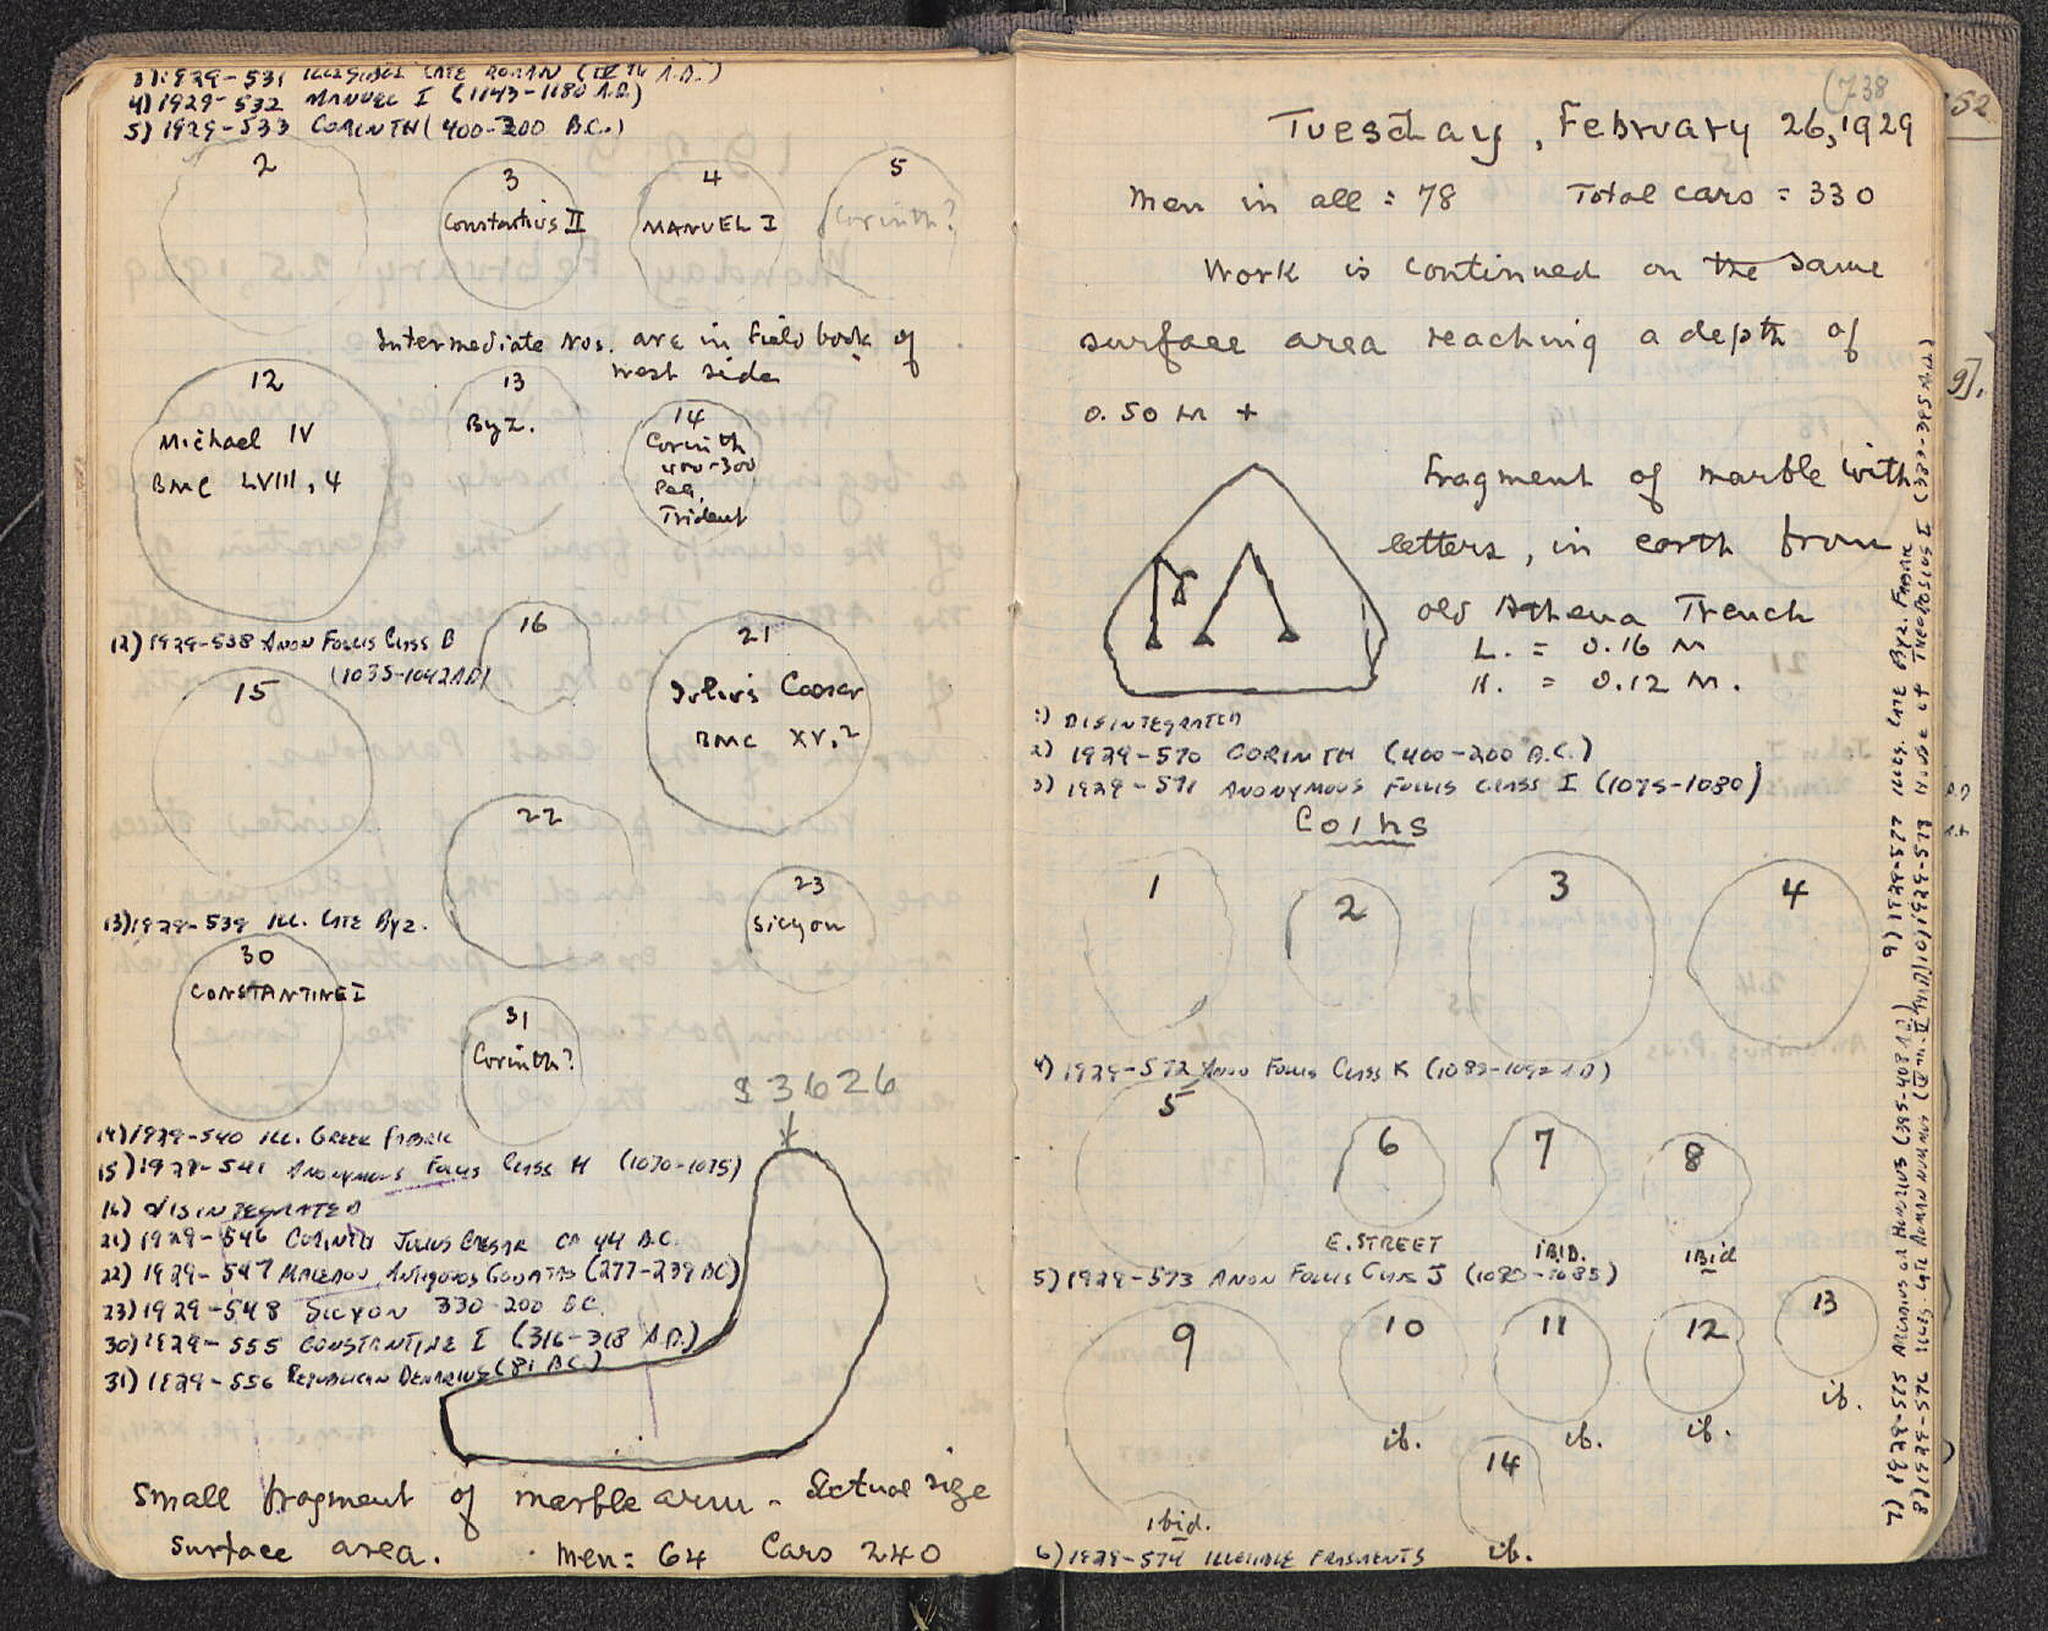 3) 1929-531 ILLEGIBLE LATE ROMAN (IV TH A.D.)
4) 1929-532 MANUEL I (1143-1180 A.D.)
5) 1929-533 CORINTH (400-200 B.C.)
2
3
Constantius II
4
MANUEL I
5
Corinth?
Intermediate Nos. are in Field book of
West side
12
Michael IV
BMC LVIII, 4
13
Byz.
14
Corinth
400-300
Peg.
Trident
12) 1929-538 ANON FOLLIS CLASS B
(1035-1042 A.D)
16
15
21
Julius Caesar
BMC XV, 2
22
23
Sicyon
13) 1929-539 ILL. LATE BYZ.
30
CONSTANTINE I
31
Corinth?
S 3626
14) 1929-540 ILL. GREEK FABRIC
15) 1929-541 ANONYMOUS FOLLIS CLASS H (1070-1075)
16) DISINTEGRATED
21) 1929-546 CORINTH JULIUS CAESAR CA 44 B.C.
22) 1929-547 MACEDON ANTIGONOS GONATAS (277-239 BC)
23) 1929-548 SICYON 330-200 BC.
30) 1929-555 CONSTANTINE I (316-318 A.D.)
31) 1929-556 REPUBLICAN DENARIUS (81 B.C.)
Small fragment of marble arm - Actual size
surface area. Men: 64 Cars 240
(738
Tuesday, February 26, 1929
Men in all = 78 Total cars = 330
Work is continued on the same
surface area reaching a depth of
0.50 M +
Fragment of marble with
letters, in earth from
old Athena Trench
L. = 0.16 M
H. = 0.12 M.
1) DISINTEGRATED
2) 1929-570 CORINTH (400-200 B.C.)
3) 1929-571 ANONYMOUS FOLLIS CLASS I (1075-1080)
Coins
1
2
3
4
4) 1929-572 ANON FOLLIS CLASS K (1085-1092 A.D)
5
6
7
8
E. STREET
IBID.
IBid
5) 1929-573 ANON FOLLIS CLASS J (1080-1085)
9
10
11
12
13
ib.
ib.
ib.
ib.
14
ibid.
ib.
6) 1929-574 ILLEGIBLE FRAGMENTS
7) 1929-575 ARCADIUS OR HONORIUS (395-408 A.D)
8) 1929-576 ILLEG. LATE ROMAN NUMMUS
9) 1929-577 ILLEG. LATE BYZ. FABRIC
10) 1929-578 HOUSE OF THEODOSIUS I (383-395 A.D.)
52
9].